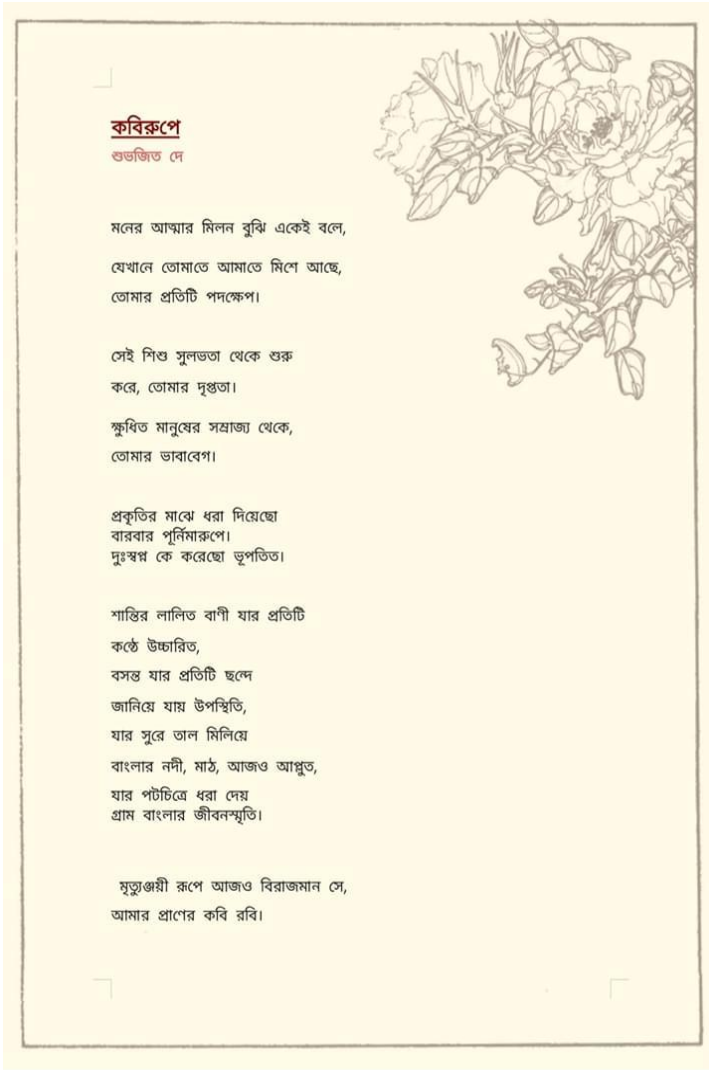 কবিরুপে
শুভজিত দে
মনের আত্মার মিলন বুঝি একেই বলে,
যেখানে তোমাতে আমাতে মিশে আছে,
তোমার প্রতিটি পদক্ষেপ।
সেই শিশু সুলভতা থেকে শুরু
করে, তোমার দৃপ্ততা।
ক্ষুধিত মানুষের সম্রাজ্য থেকে,
তোমার ভাবাবেগ।
প্রকৃতির মাঝে ধরা দিয়েছো
বারবার পূর্নিমারুপে।
দুঃস্বপ্ন কে করেছো ভূপতিত।
শান্তির লালিত বাণী যার প্রতিটি
কণ্ঠে উচ্চারিত,
বসন্ত যার প্রতিটি ছন্দে
জানিয়ে যায় উপস্থিতি,
যার সুরে তাল মিলিয়ে
বাংলার নদী, মাঠ, আজও আপ্লুত,
যার পটচিত্রে ধরা দেয়
গ্রাম বাংলার জীবনস্মৃতি।
মৃত্যুঞ্জয়ী রূপে আজও বিরাজমান সে,
আমার প্রাণের কবি রবি।